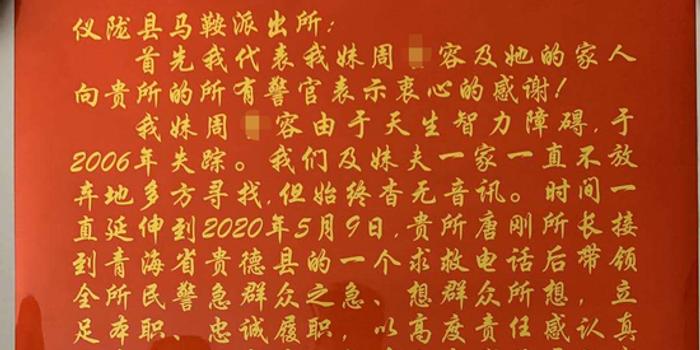 仪陇县马鞍派出所:
首先我代表我妹周 容及她的家人
向贵所的所有警官表示衷心的感谢!
我妹周 容由于天生智力障碍,于
2006年失踪。我们及妹夫一家一直不放
弃地多方寻找,但始终杳无音讯。时间一
直延伸到2020年5月9日,贵所唐刚所长接
到青海省贵德县的一个求救电话后带领
全所民警急群众之急、想群众所想,立
足本职、忠诚履职,以高度责任感认真